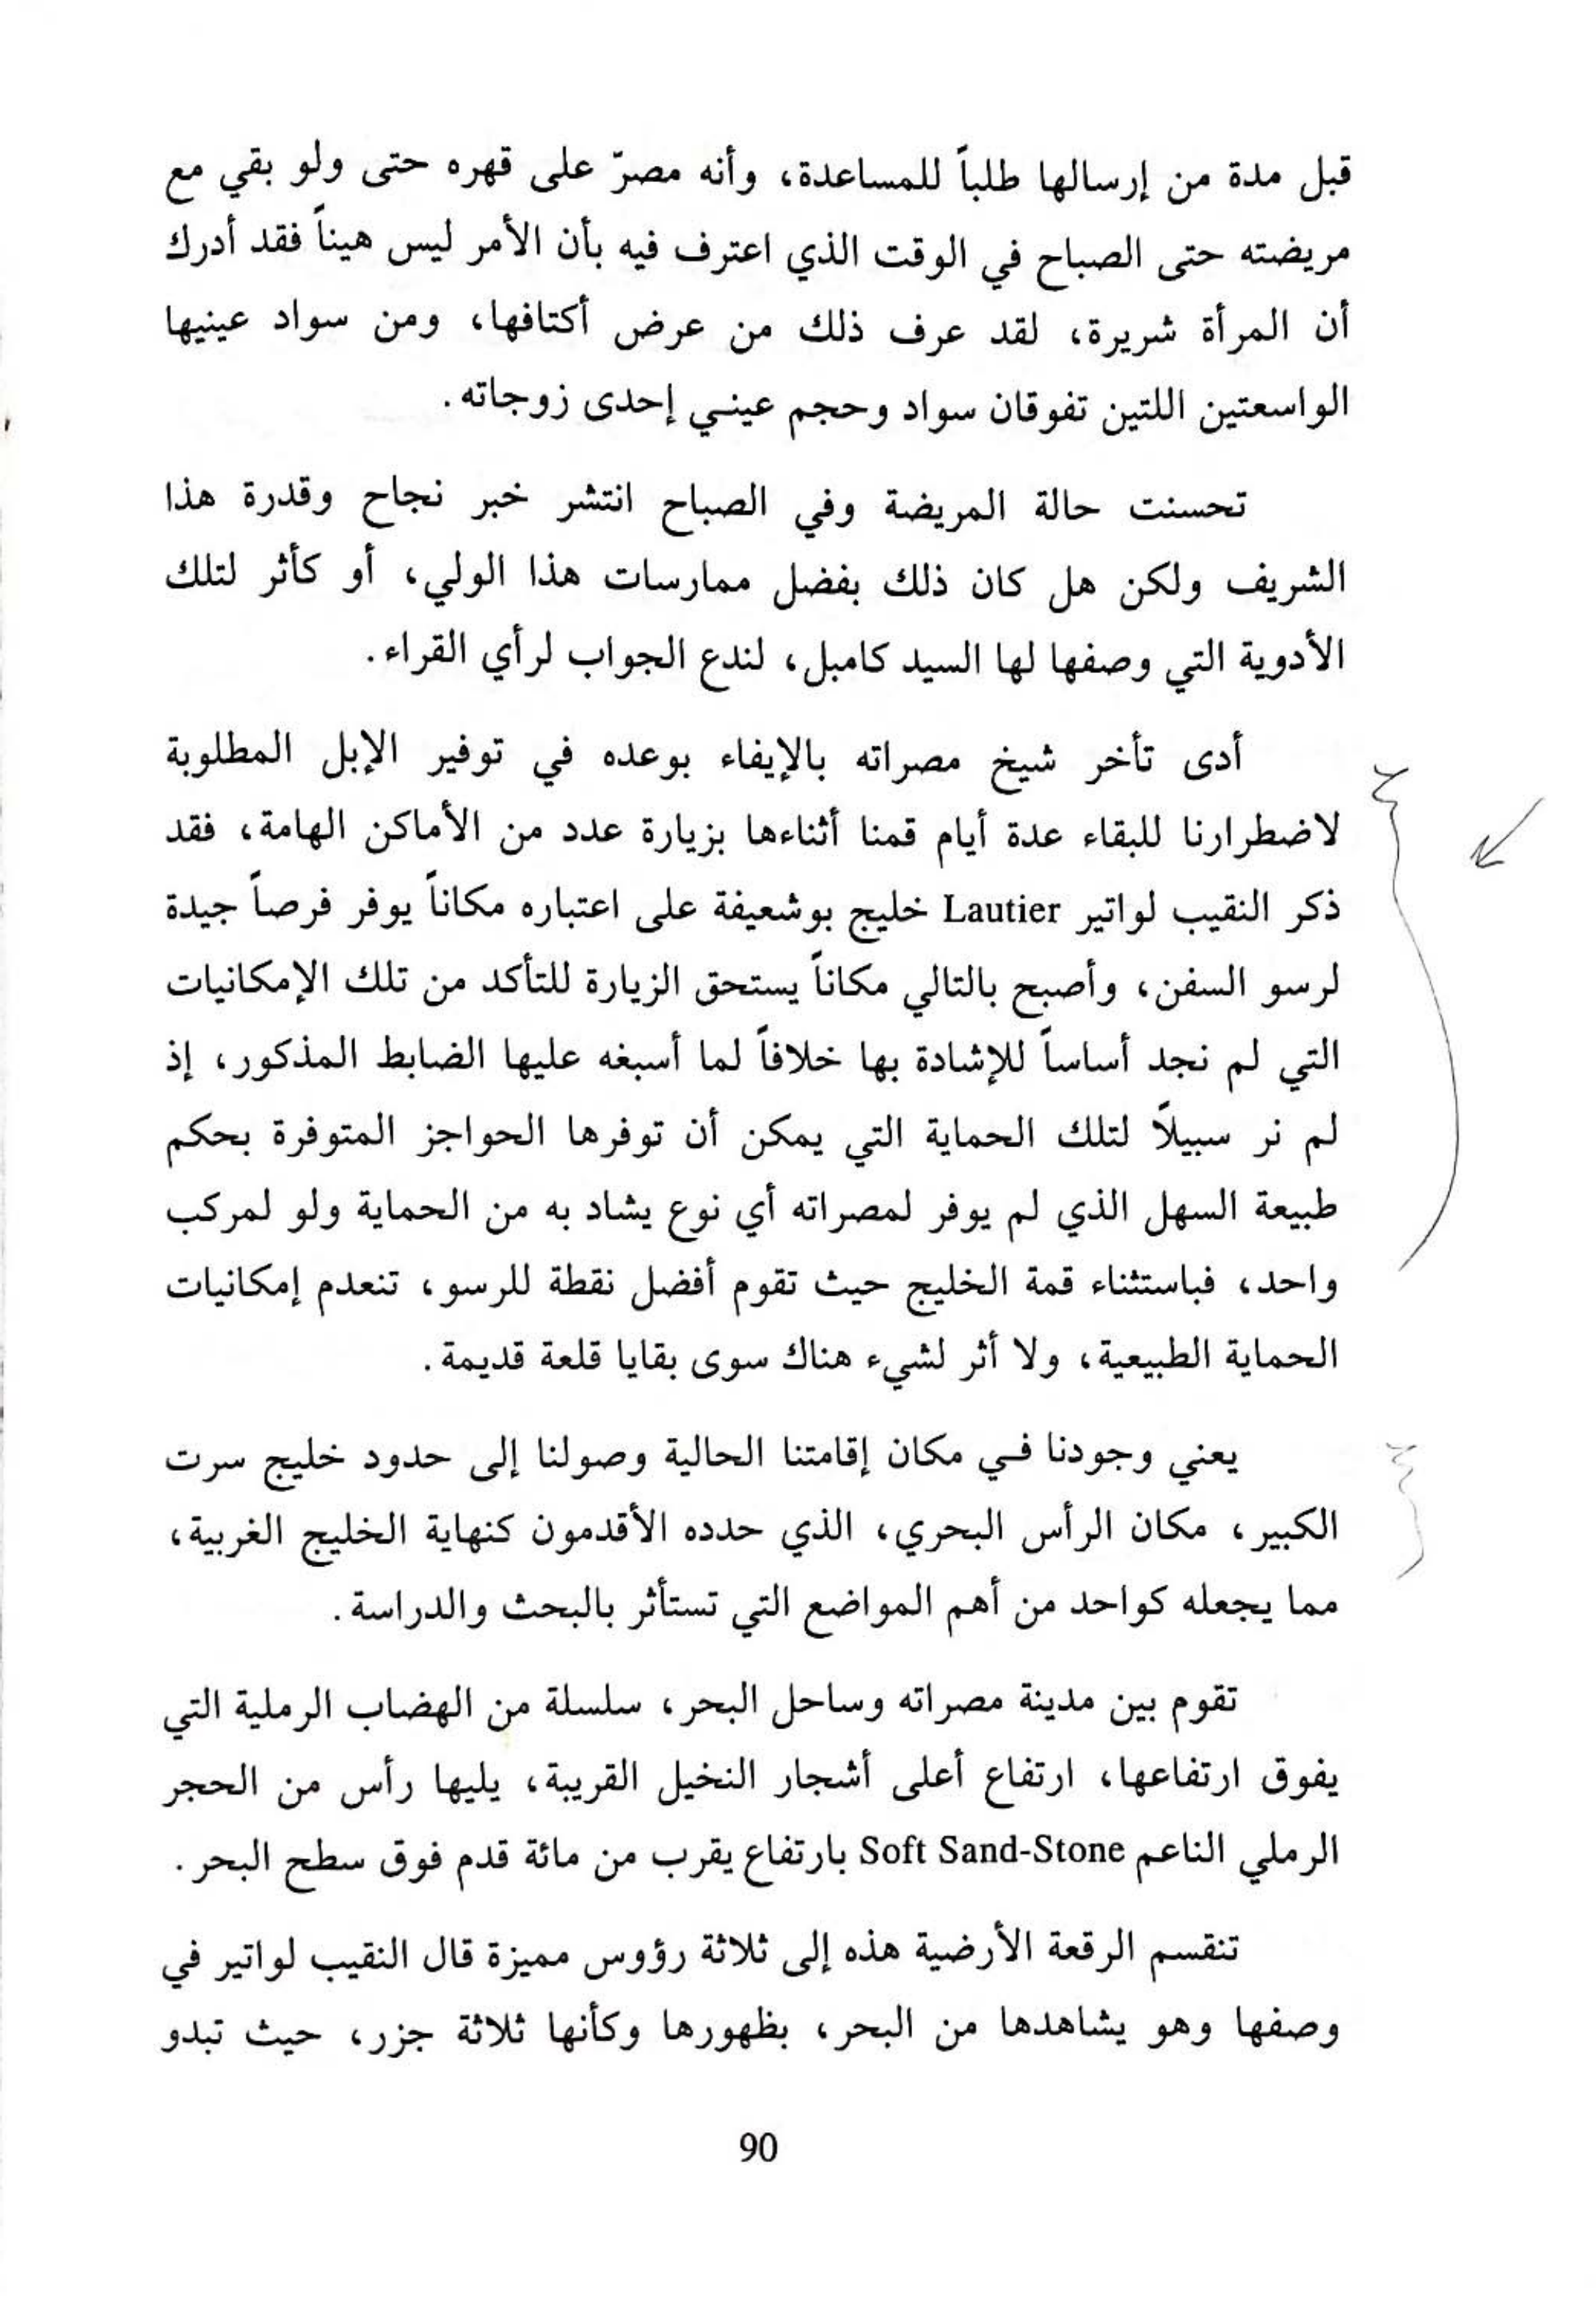 قبل مدة من إرسالها طلباً للمساعدة، وأنه مصرّ على قهره حتى ولو بقي مع
مريضته حتى الصباح في الوقت الذي اعترف فيه بأن الأمر ليس هيناً فقد أدرك
أن المرأة شريرة، لقد عرف ذلك من عرض أكتافها، ومن سواد عينيها
الواسعتين اللتين تفوقان سواد وحجم عيني إحدى زوجاته.
تحسنت حالة المريضة وفي الصباح انتشر خبر نجاح وقدرة هذا
الشريف ولكن هل كان ذلك بفضل ممارسات هذا الولي، أو كأثر لتلك
الأدوية التي وصفها لها السيد كامبل، لندع الجواب لرأي القراء.
أدى تأخر شيخ مصراته بالإيفاء بوعده في توفير الإبل المطلوبة
لاضطرارنا للبقاء عدة أيام قمنا أثناءها بزيارة عدد من الأماكن الهامة، فقد
ذكر النقيب لواتير Lautier خليج بوشعيفة على اعتباره مكاناً يوفر فرصاً جيدة
لرسو السفن، وأصبح بالتالي مكاناً يستحق الزيارة للتأكد من تلك الإمكانيات
التي لم نجد أساساً للإشادة بها خلافاً لما أسبغه عليها الضابط المذكور، إذ
لم نر سبيلاً لتلك الحماية التي يمكن أن توفرها الحواجز المتوفرة بحكم
طبيعة السهل الذي لم يوفر لمصراته أي نوع يشاد به من الحماية ولو لمركب
واحد، فباستثناء قمة الخليج حيث تقوم أفضل نقطة للرسو، تنعدم إمكانيات
الحماية الطبيعية، ولا أثر لشيء هناك سوى بقايا قلعة قديمة.
يعني وجودنا في مكان إقامتنا الحالية وصولنا إلى حدود خليج سرت
الكبير، مكان الرأس البحري، الذي حدده الأقدمون كنهاية الخليج الغربية،
مما يجعله كواحد من أهم المواضع التي تستأثر بالبحث والدراسة.
تقوم بين مدينة مصراته وساحل البحر، سلسلة من الهضاب الرملية التي
يفوق ارتفاعها، ارتفاع أعلى أشجار النخيل القريبة، يليها رأس من الحجر
الرملي الناعم Soft Sand-Stone بارتفاع يقرب من مائة قدم فوق سطح البحر.
تنقسم الرقعة الأرضية هذه إلى ثلاثة رؤوس مميزة قال النقيب لواتير في
وصفها وهو يشاهدها من البحر، بظهورها وكأنها ثلاثة جزر، حيث تبدو
90